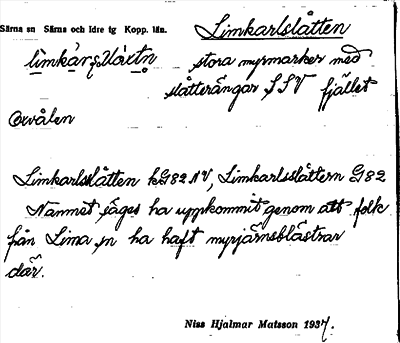 Särna sn Särna och Idre tg Kopp. län. Limkarlslåtten
stora myrmarker med
slåtterängar, SSV fjället
Oxvålen
Limkarlslåtten kG82NV, Limkarlsslåttern G82
Namnet säges ha uppkommit genom att folk
från Lima sn ha haft myrjärnsblästrar
där.
Niss Hjalmar Matsson 1937.